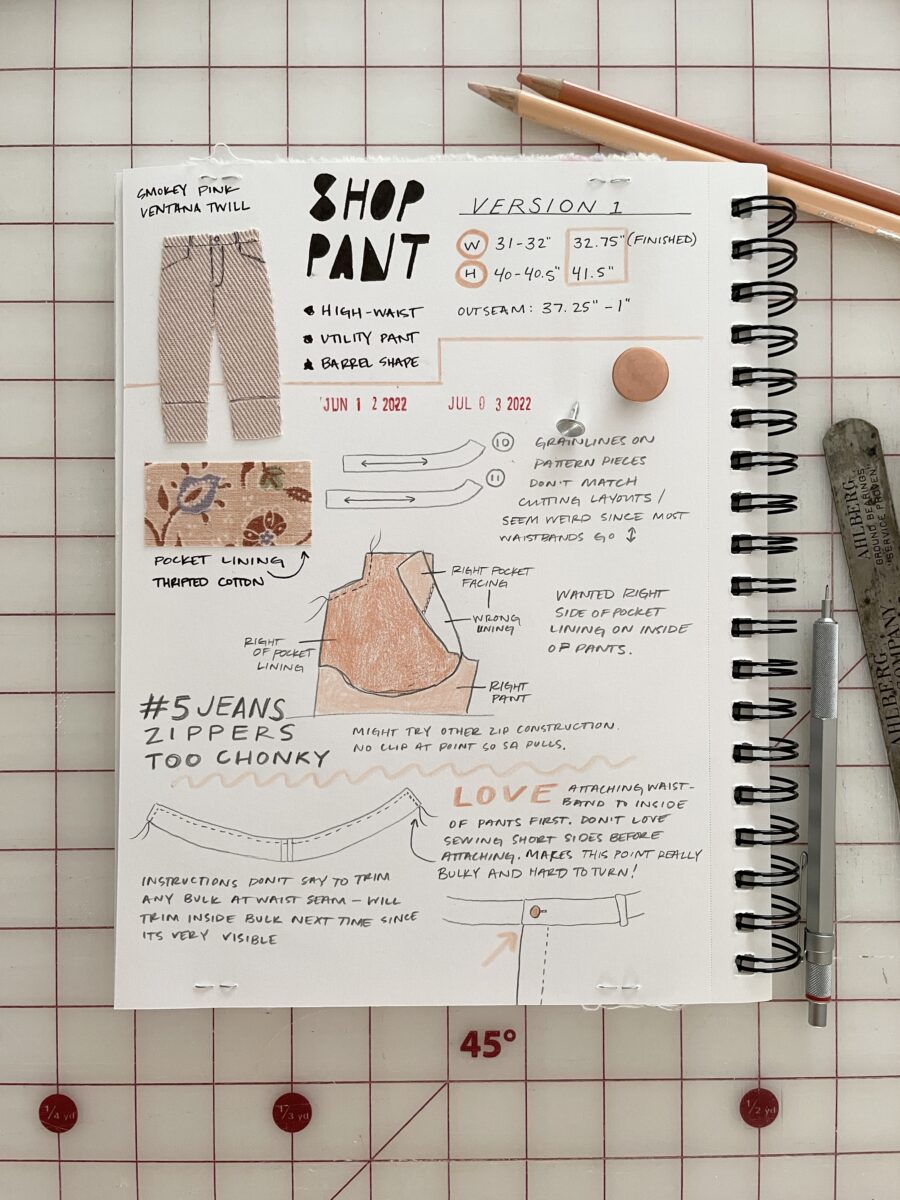 SMOKEY PINK
VENTANA TWILL
SHOP
PANT
HIGH-WAIST
UTILITY PANT
BARREL SHAPE
VERSION 1
W 31-32" 32.75" (FINISHED)
H 40-40.5" 41.5"
OUTSEAM: 37.25" -1"
JUN 1 2 2022 JUL 0 3 2022
10
11
GRAINLINES ON
PATTERN PIECES
DON'T MATCH
CUTTING LAYOUTS /
SEEM WEIRD SINCE MOST
WAISTBANDS GO ↕
POCKET LINING
THRIFTED COTTON
RIGHT POCKET
FACING
WRONG
LINING
RIGHT
OF POCKET
LINING
RIGHT
PANT
WANTED RIGHT
SIDE OF POCKET
LINING ON INSIDE
OF PANTS.
#5 JEANS
ZIPPERS
TOO CHONKY
MIGHT TRY OTHER ZIP CONSTRUCTION.
NO CLIP AT POINT SO SA PULLS.
LOVE ATTACHING WAIST-
BAND TO INSIDE
OF PANTS FIRST. DON'T LOVE
SEWING SHORT SIDES BEFORE
ATTACHING. MAKES THIS POINT REALLY
BULKY AND HARD TO TURN!
INSTRUCTIONS DON'T SAY TO TRIM
ANY BULK AT WAIST SEAM - WILL
TRIM INSIDE BULK NEXT TIME SINCE
ITS VERY VISIBLE
AHLBERG
GROUND BEARINGS
"SERVICE PROVEN"
AHLBERG
COMPANY
45°
1/4 yd
1/3 yd
1/2 yd